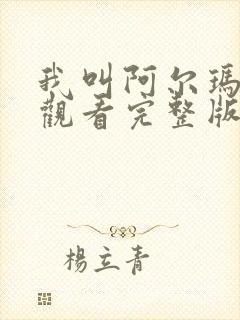 我叫阿尔瑪
觀看完整版
楊立青